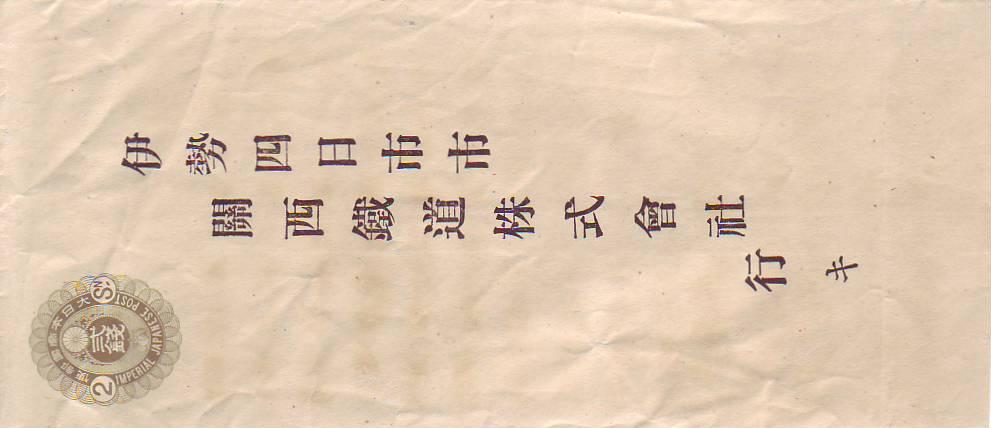 伊勢四日市市
關西鐵道株式會社
行
キ
大日本帝國郵便
貳錢
2 Sn
IMPERIAL JAPANESE POST